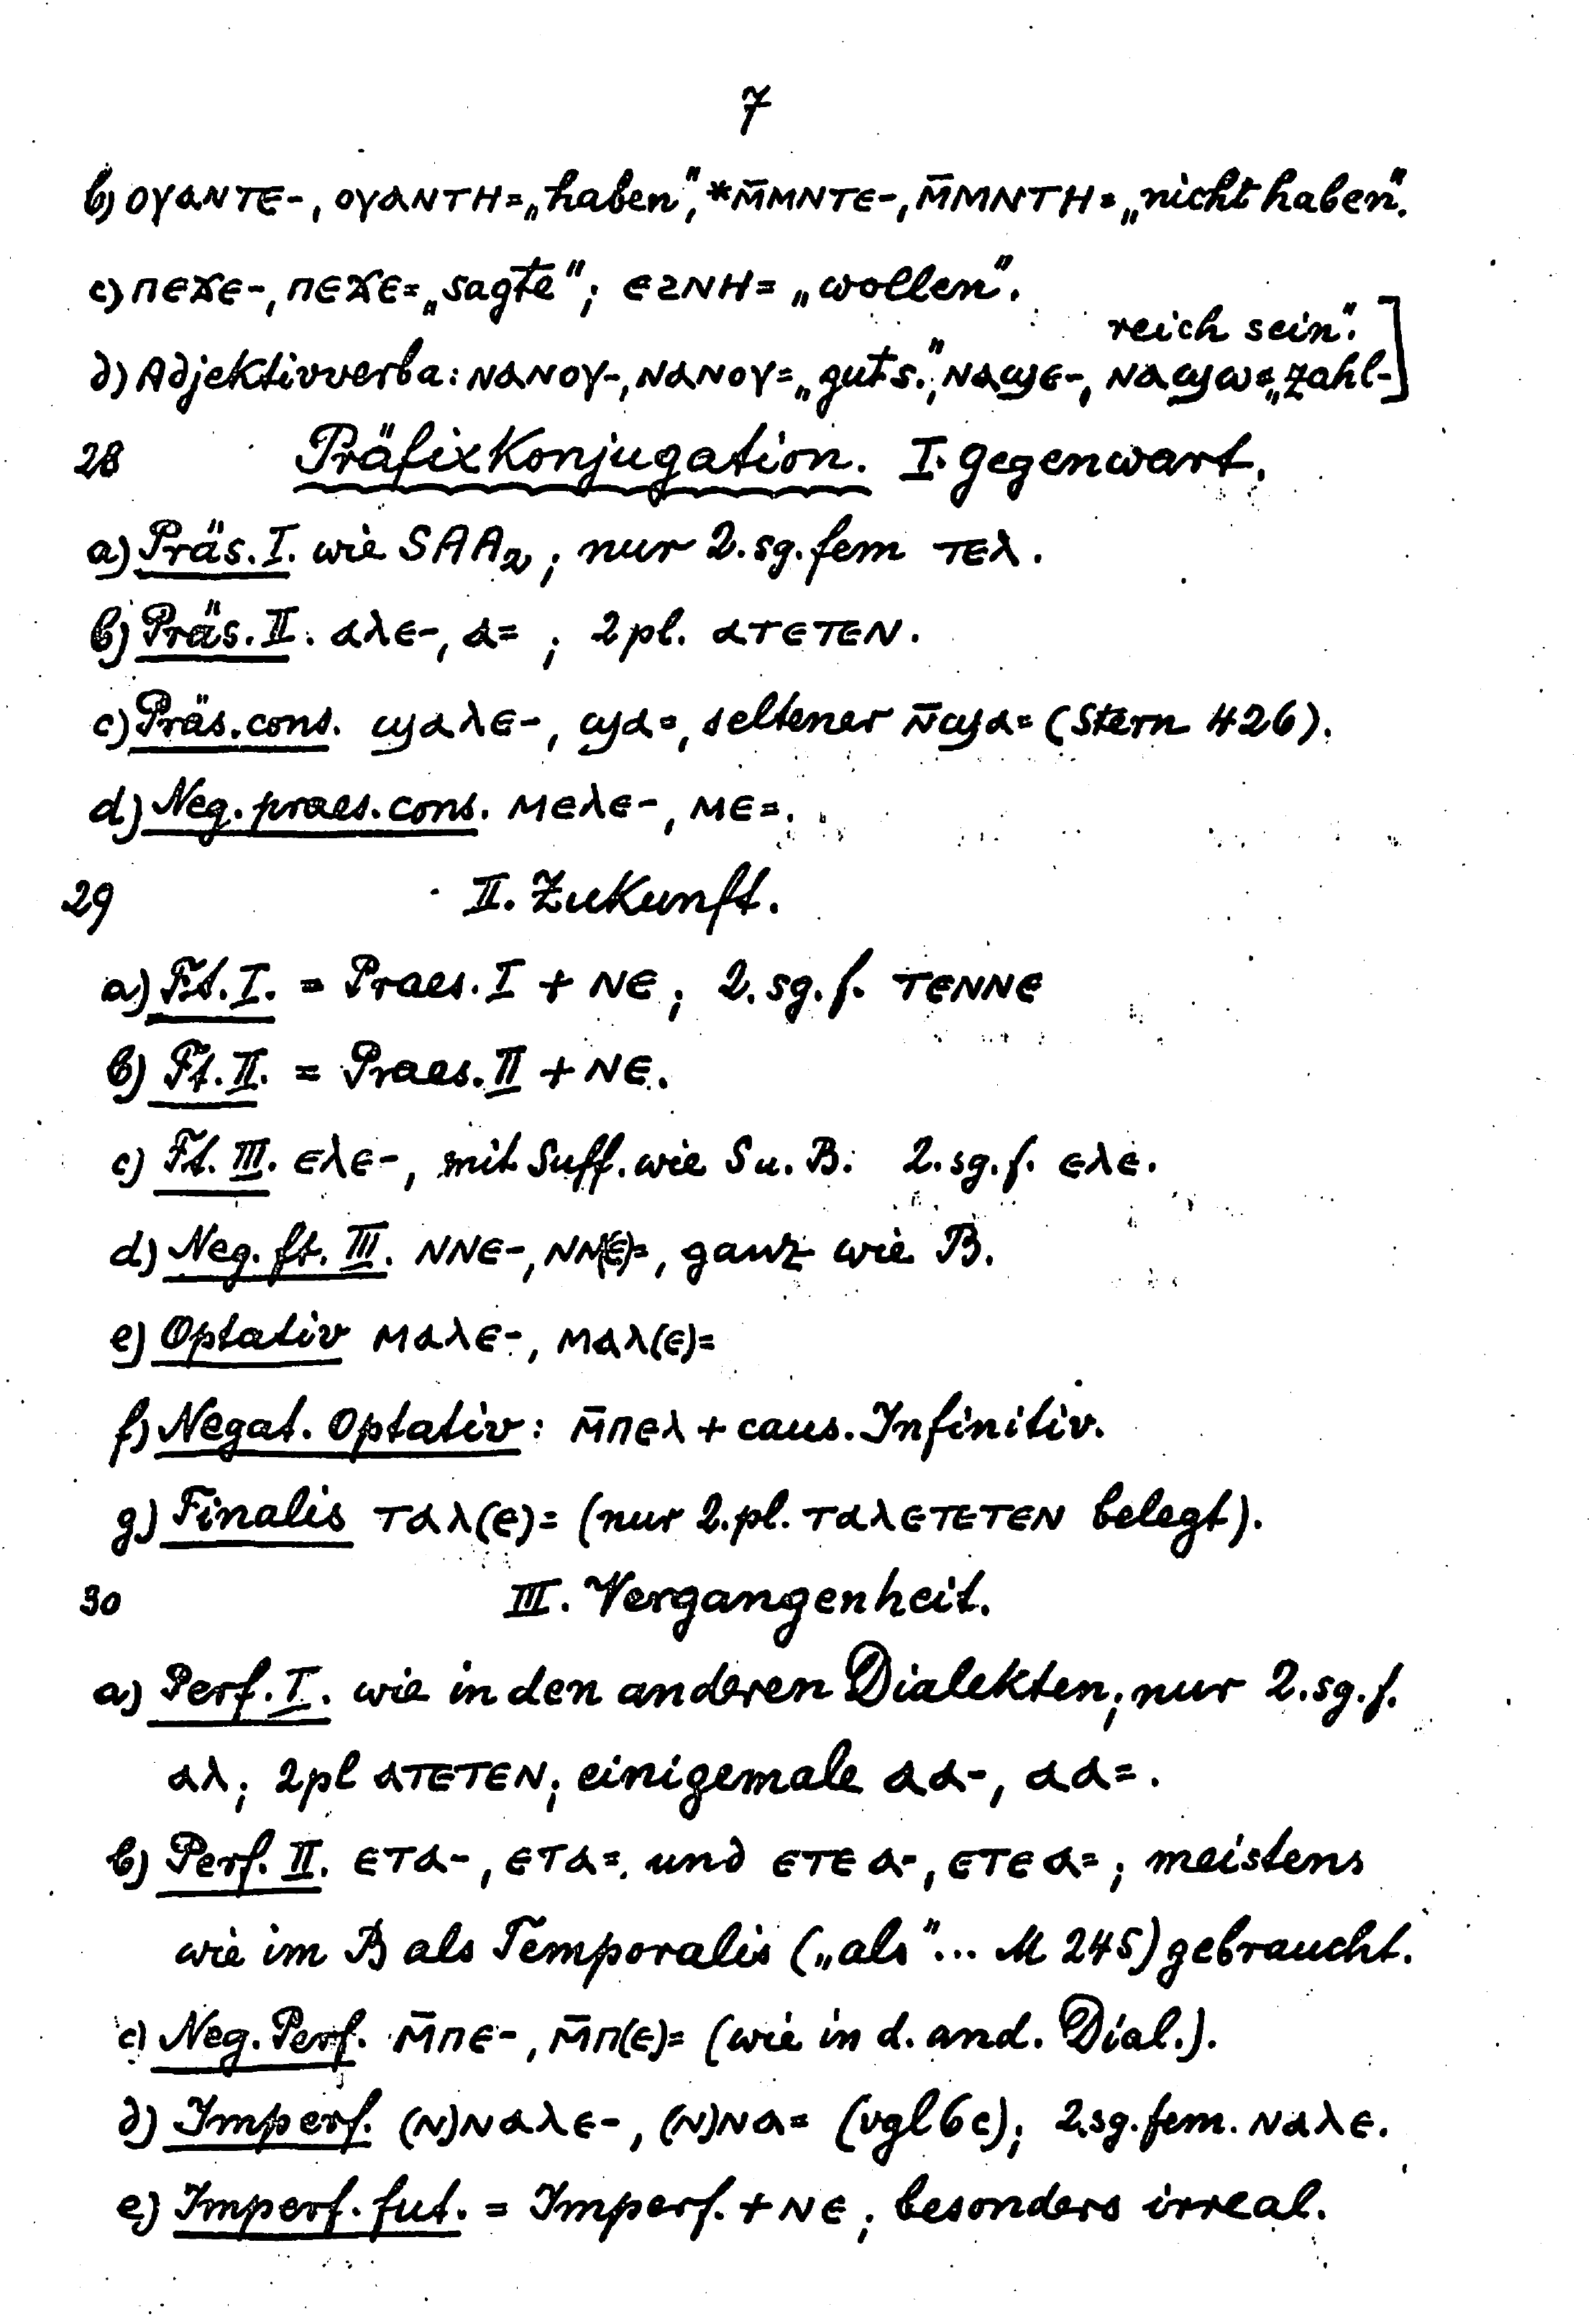 7
b) ⲟⲩⲁⲛⲧⲉ-, ⲟⲩⲁⲛⲧⲏ= „haben", *ⲙ̄ⲙⲛⲧⲉ-, ⲙ̄ⲙⲛⲧⲏ= „nicht haben".
c) ⲡⲉϫⲉ-, ⲡⲉϫⲉ= „sagte"; ⲉϩⲛⲏ= „wollen".
reich sein". ]
d) Adjektivverba: ⲛⲁⲛⲟⲩ-, ⲛⲁⲛⲟⲩ= „gut s.", ⲛⲁϣⲉ-, ⲛⲁϣⲱ= „zahl-
28 Präfixkonjugation. I. Gegenwart.
a) Präs. I. wie SAA₂; nur 2. sg. fem ⲧⲉⲗ.
b) Präs. II. ⲁⲗⲉ-, ⲁ= ; 2 pl. ⲁⲧⲉⲧⲉⲛ.
c) Präs. cons. ϣⲁⲗⲉ-, ϣⲁ=, seltener ⲛ̄ϣⲁ= (Stern 426).
d) Neg. praes. cons. ⲙⲉⲗⲉ-, ⲙⲉ=.
29 II. Zukunft.
a) Ft. I. = Praes. I + ⲛⲉ; 2. sg. f. ⲧⲉⲛⲛⲉ
b) Ft. II. = Praes. II + ⲛⲉ.
c) Ft. III. ⲉⲗⲉ-, mit Suff. wie S u. B: 2. sg. f. ⲉⲗⲉ.
d) Neg. ft. III. ⲛⲛⲉ-, ⲛⲛ(ⲉ)=, ganz wie B.
e) Optativ ⲙⲁⲗⲉ-, ⲙⲁⲗ(ⲉ)=
f) Negat. Optativ: ⲙ̄ⲡⲉⲗ + caus. Infinitiv.
g) Finalis ⲧⲁⲗ(ⲉ)= (nur 2. pl. ⲧⲁⲗⲉⲧⲉⲧⲉⲛ belegt).
30 III. Vergangenheit.
a) Perf. I. wie in den anderen Dialekten; nur 2. sg. f.
ⲁⲗ; 2 pl ⲁⲧⲉⲧⲉⲛ; einigemale ⲁⲁ-, ⲁⲁ=.
b) Perf. II. ⲉⲧⲁ-, ⲉⲧⲁ=. und ⲉⲧⲉⲁ-, ⲉⲧⲉⲁ= ; meistens
wie im B als Temporalis („als"... M 245) gebraucht.
c) Neg. Perf. ⲙ̄ⲡⲉ-, ⲙ̄ⲡ(ⲉ)= (wie in d. and. Dial.).
d) Imperf. (ⲛ)ⲛⲁⲗⲉ-, (ⲛ)ⲛⲁ= (vgl 6c); 2. sg. fem. ⲛⲁⲗⲉ.
e) Imperf. fut. = Imperf. + ⲛⲉ; besonders irreal.